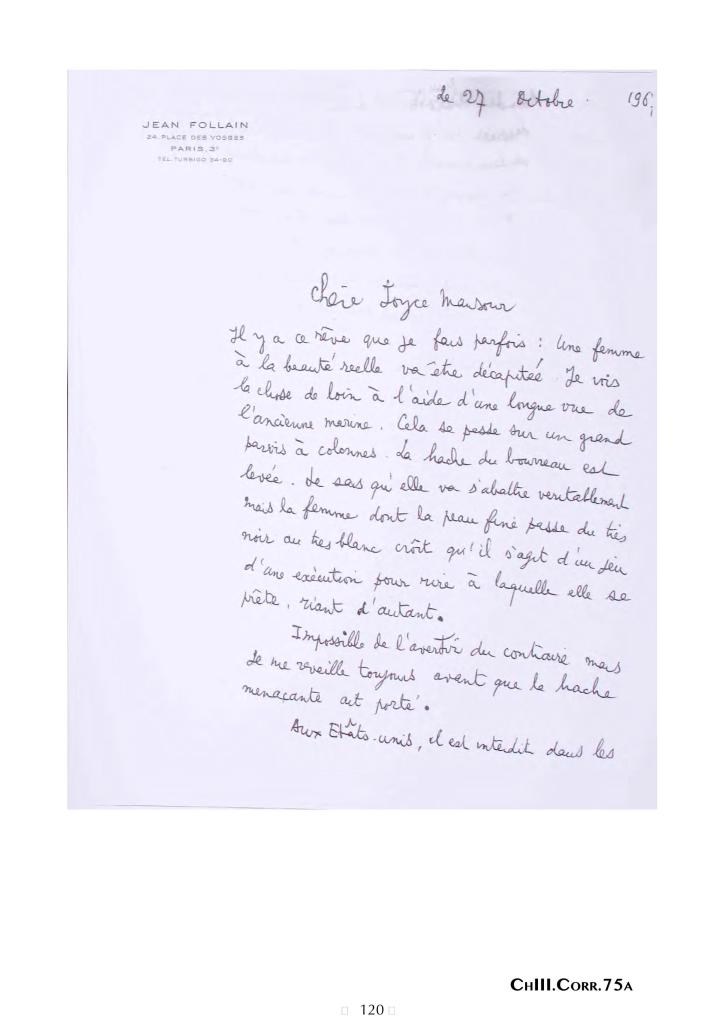 le 27 Octobre. 196
JEAN FOLLAIN
24, PLACE DES VOSGES
PARIS, 3e
TÉL. TURBIGO 34-90
Chère Joyce Mansour
Il y a ce rêve que je fais parfois : Une femme
à la beauté réelle va être décapitée. Je vois
la chose de loin à l'aide d'une longue vue de
l'ancienne marine. Cela se passe sur un grand
parvis à colonnes. La hache du bourreau est
levée. Je sais qu'elle va s'abattre véritablement
mais la femme dont la peau fine passe du très
noir au très blanc croit qu'il s'agit d'un jeu
d'une exécution pour rire à laquelle elle se
prête, riant d'autant.
Impossible de l'avertir du contraire mais
Je me réveille toujours avant que la hache
menaçante ait porté.
Aux Etats-unis, il est interdit dans les
CHIII.CORR.75A
120